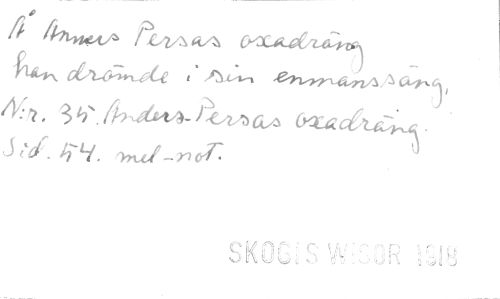 Å Anners Persas oxadräng
han drömde i sin enmanssäng,
N:r. 35. Anders-Persas oxadräng.
Sid. 54. mel-not.
SKOGIS WISOR 1918